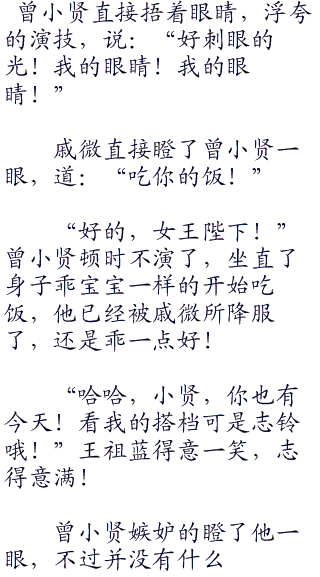 曾小贤直接捂着眼睛，浮夸
的演技，说：“好刺眼的
光！我的眼睛！我的眼
睛！”
戚微直接瞪了曾小贤一
眼，道：“吃你的饭！”
“好的，女王陛下！”
曾小贤顿时不演了，坐直了
身子乖宝宝一样的开始吃
饭，他已经被戚微所降服
了，还是乖一点好！
“哈哈，小贤，你也有
今天！看我的搭档可是志铃
哦！”王祖蓝得意一笑，志
得意满！
曾小贤嫉妒的瞪了他一
眼，不过并没有什么